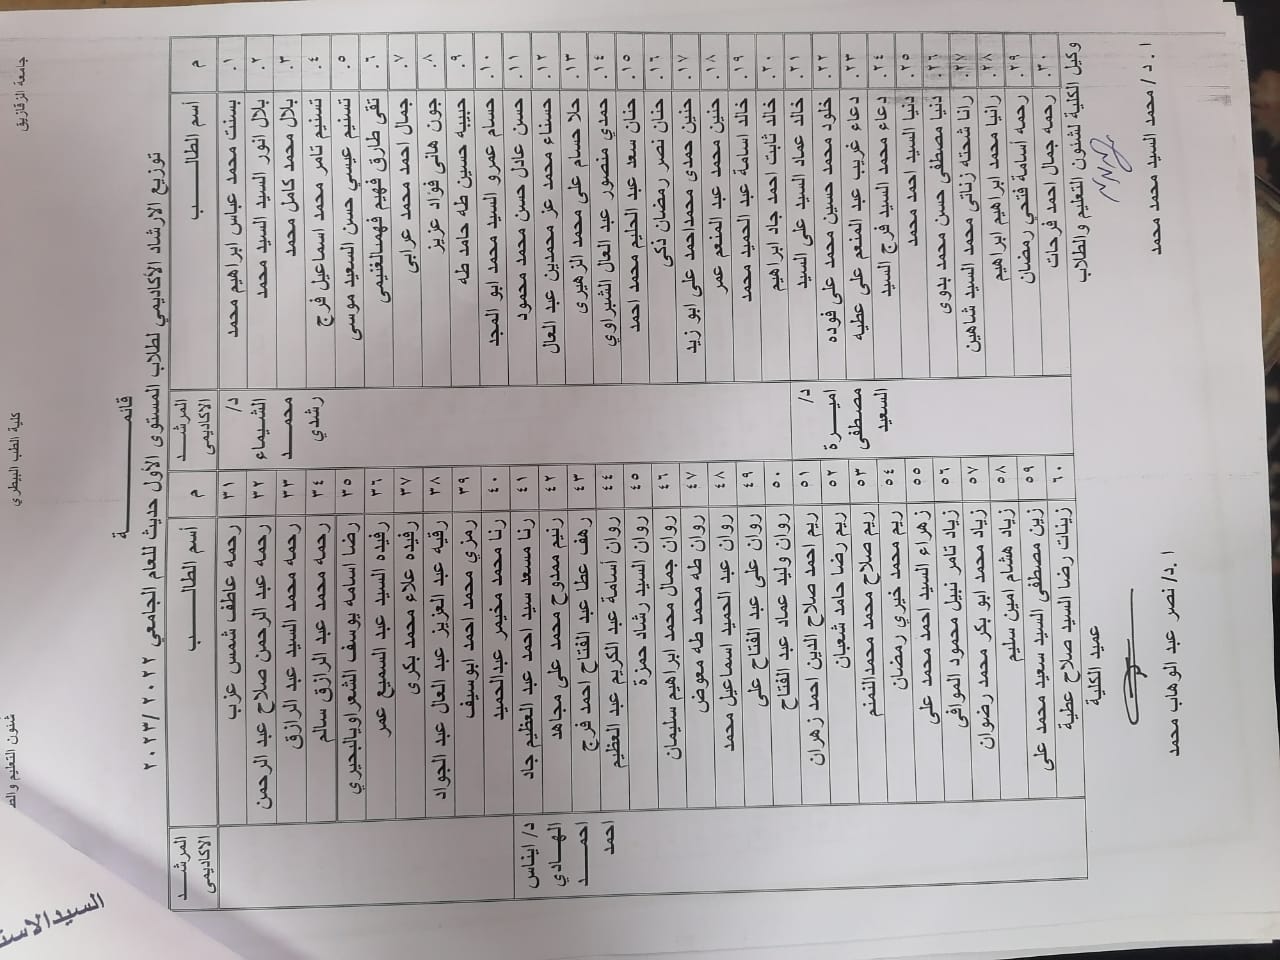 جامعة الزقازيق
كلية الطب البيطري
شئون التعليم والط
السيد الاست
قائمـــــــــــة
توزيع الارشاد الأكاديمي لطلاب المستوى الأول حديث للعام الجامعي ٢٠٢٢ / ٢٠٢٣
م أسم الطالـــــب المرشـــد الاكاديمى م أسم الطالـــــب المرشـــد الاكاديمى
١. بسنت محمد عباس ابراهيم محمد د/ ٣١ رحمه عاطف شمس عزب
٢. بلال انور السيد السيد محمد الشيماء ٣٢ رحمه عبد الرحمن صلاح عبد الرحمن
٣. بلال محمد كامل محمد محمـــد ٣٣ رحمه محمد السيد عبد الرازق
٤. تسنيم تامر محمد اسماعيل فرج رشدي ٣٤ رحمه محمد عبد الرازق سالم
٥. تسنيم عيسي حسن السعيد موسى ٣٥ رضا اسامه يوسف الشعراويالبحيري
٦. تقى طارق فهيم فهمىالغنيمى ٣٦ رفيده السيد عبد السميع عمر
٧. جمال احمد محمد عرابى ٣٧ رفيده علاء محمد بكرى
٨. جون هانى فؤاد عزيز ٣٨ رقيه عبد العزيز عبد العال عبد الجواد
٩. حبيبه حسين طه حامد طه ٣٩ رمزي محمد احمد ابوسيف
١٠. حسام عمرو السيد محمد ابو المجد ٤٠ رنا محمد مخيمر عبدالحميد
١١. حسن عادل حسن محمد محمود ٤١ رنا مسعد سيد احمد عبد العظيم جاد د/ ايناس
١٢. حسناء محمد عز محمدبن عبد العال ٤٢ رنيم ممدوح محمد على مجاهد الهـــادي
١٣. حلا حسام على محمد الزهيرى ٤٣ رهف عطا عبد الفتاح احمد فرج احمـــد
١٤. حمدي منصور عبد العال الشبراوي ٤٤ روان أسامة عبد الكريم عبد العظيم احمد
١٥. حنان سعد عبد الحليم محمد احمد ٤٥ روان السيد رشاد حمزة
١٦. حنان نصر رمضان ذكى ٤٦ روان جمال محمد ابراهيم سليمان
١٧. حنين حمدى محمداحمد على ابو زيد ٤٧ روان طه محمد طه معوض
١٨. حنين محمد عبد المنعم عمر ٤٨ روان عبد الحميد اسماعيل محمد
١٩. خالد اسامة عبد الحميد محمد ٤٩ روان على عبد الفتاح على
٢٠. خالد ثابت احمد جاد ابراهيم ٥٠ روان وليد عماد عبد الفتاح
٢١. خالد عماد السيد على السيد د/ ٥١ ريم احمد صلاح الدين احمد زهران
٢٢. خلود محمد حسين محمد على فوده اميـــرة ٥٢ ريم رضا حامد شعبان
٢٣. دعاء غريب عبد المنعم على عطيه مصطفى ٥٣ ريم صلاح محمد محمدالنمنم
٢٤. دعاء محمد السيد فرج السيد السعيد ٥٤ ريم محمد خيري رمضان
٢٥. دنيا السيد احمد محمد ٥٥ زهراء السيد احمد محمد على
٢٦. دنيا مصطفى حسن محمد بدوى ٥٦ زياد تامر نبيل محمود الموافى
٢٧. رانا شحته زناتى محمد السيد شاهين ٥٧ زياد محمد ابو بكر محمد رضوان
٢٨. رانيا محمد ابراهيم ابراهيم ٥٨ زياد هشام امين سليم
٢٩. رحمه أسامة فتحي رمضان ٥٩ زين مصطفى السيد سعيد محمد على
٣٠. رحمه جمال احمد فرحات ٦٠ زينات رضا السيد صلاح عطية
وكيل الكلية لشئون التعليم والطلاب عميد الكلية
ا . د / محمد السيد محمد محمد ا .د/ نصر عبد الوهاب محمد